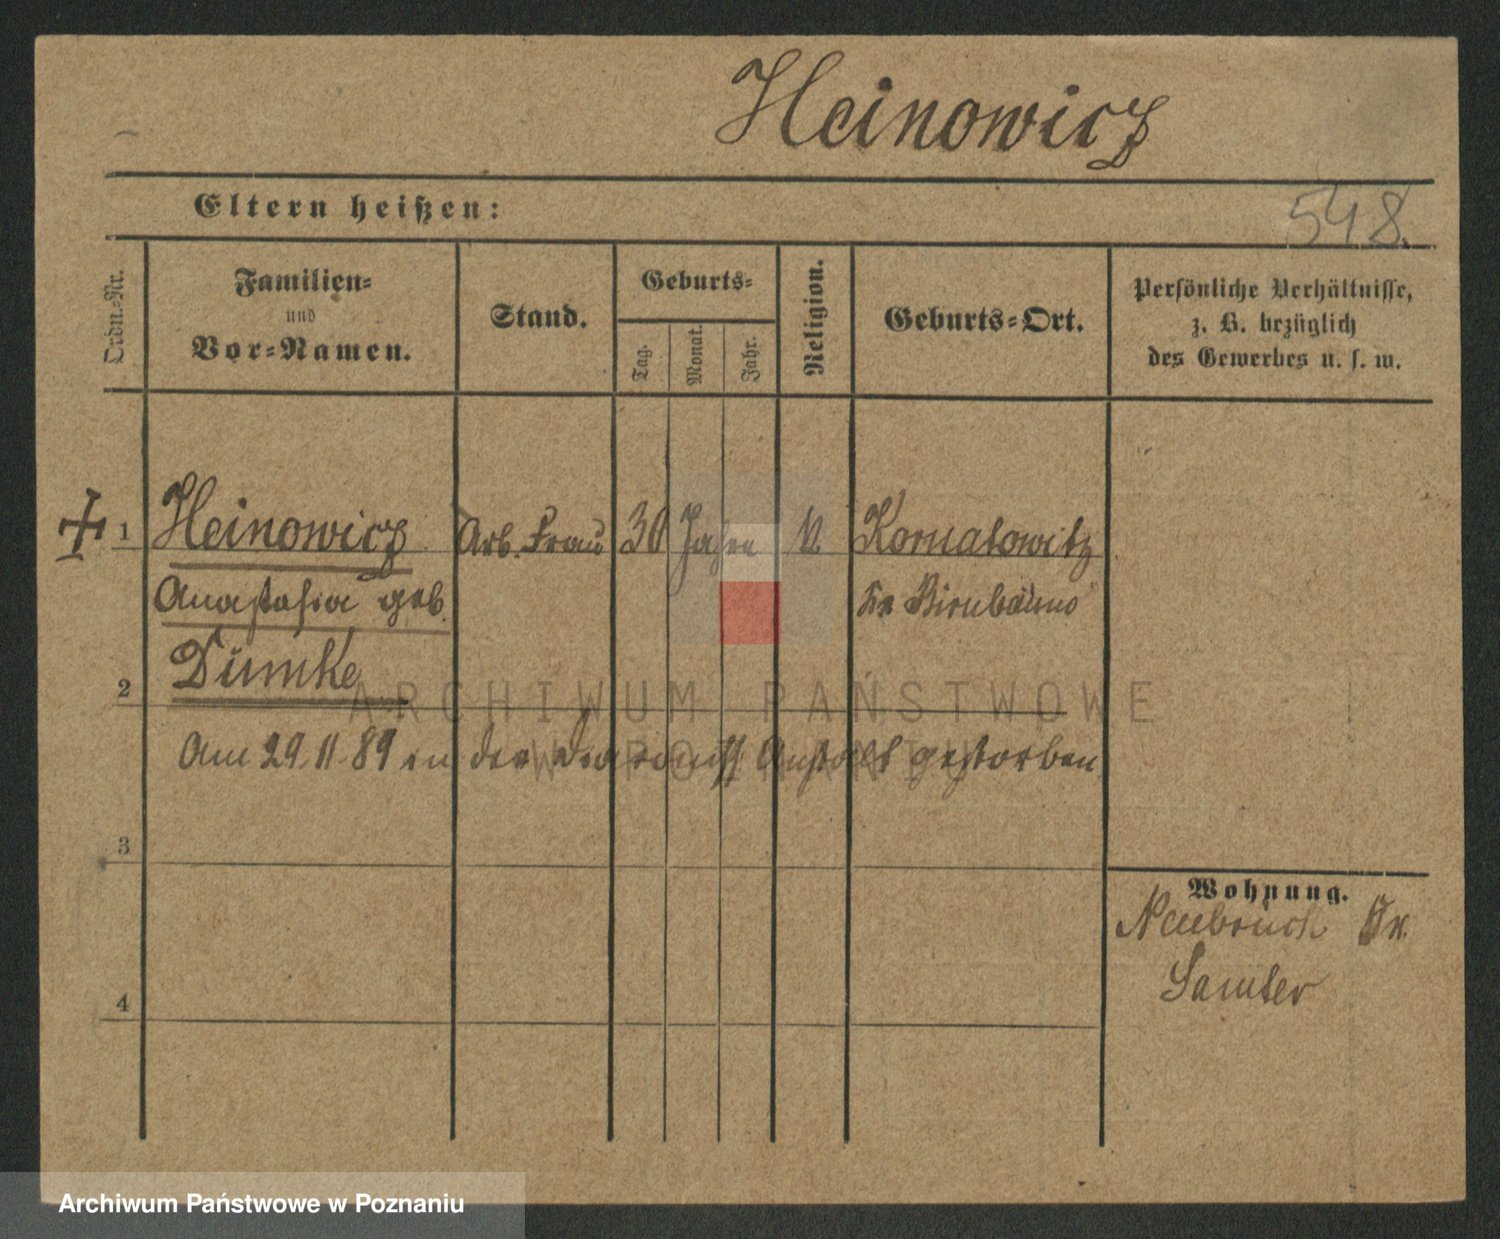 Heinowicz
Eltern heißen:
548.
Ordn.-Nr.
Familien-
und
Vor-Namen.
Stand.
Geburts-
Tag.
Monat.
Jahr.
Religion.
Geburts-Ort.
Persönliche Verhältnisse,
z. B. bezüglich
des Gewerbes u. s. w.
1 Heinowicz Arb. Frau 30 Jahre Kornatowitz
Anastasia geb. Kr. Birnbaum
Dümke
2
Am 29.11.89 in der Diakoniss Anstalt gestorben
3
Wohnung.
Neubrück Kr.
Samter
4
ARCHIWUM PAŃSTWOWE
W POZNANIU
Archiwum Państwowe w Poznaniu